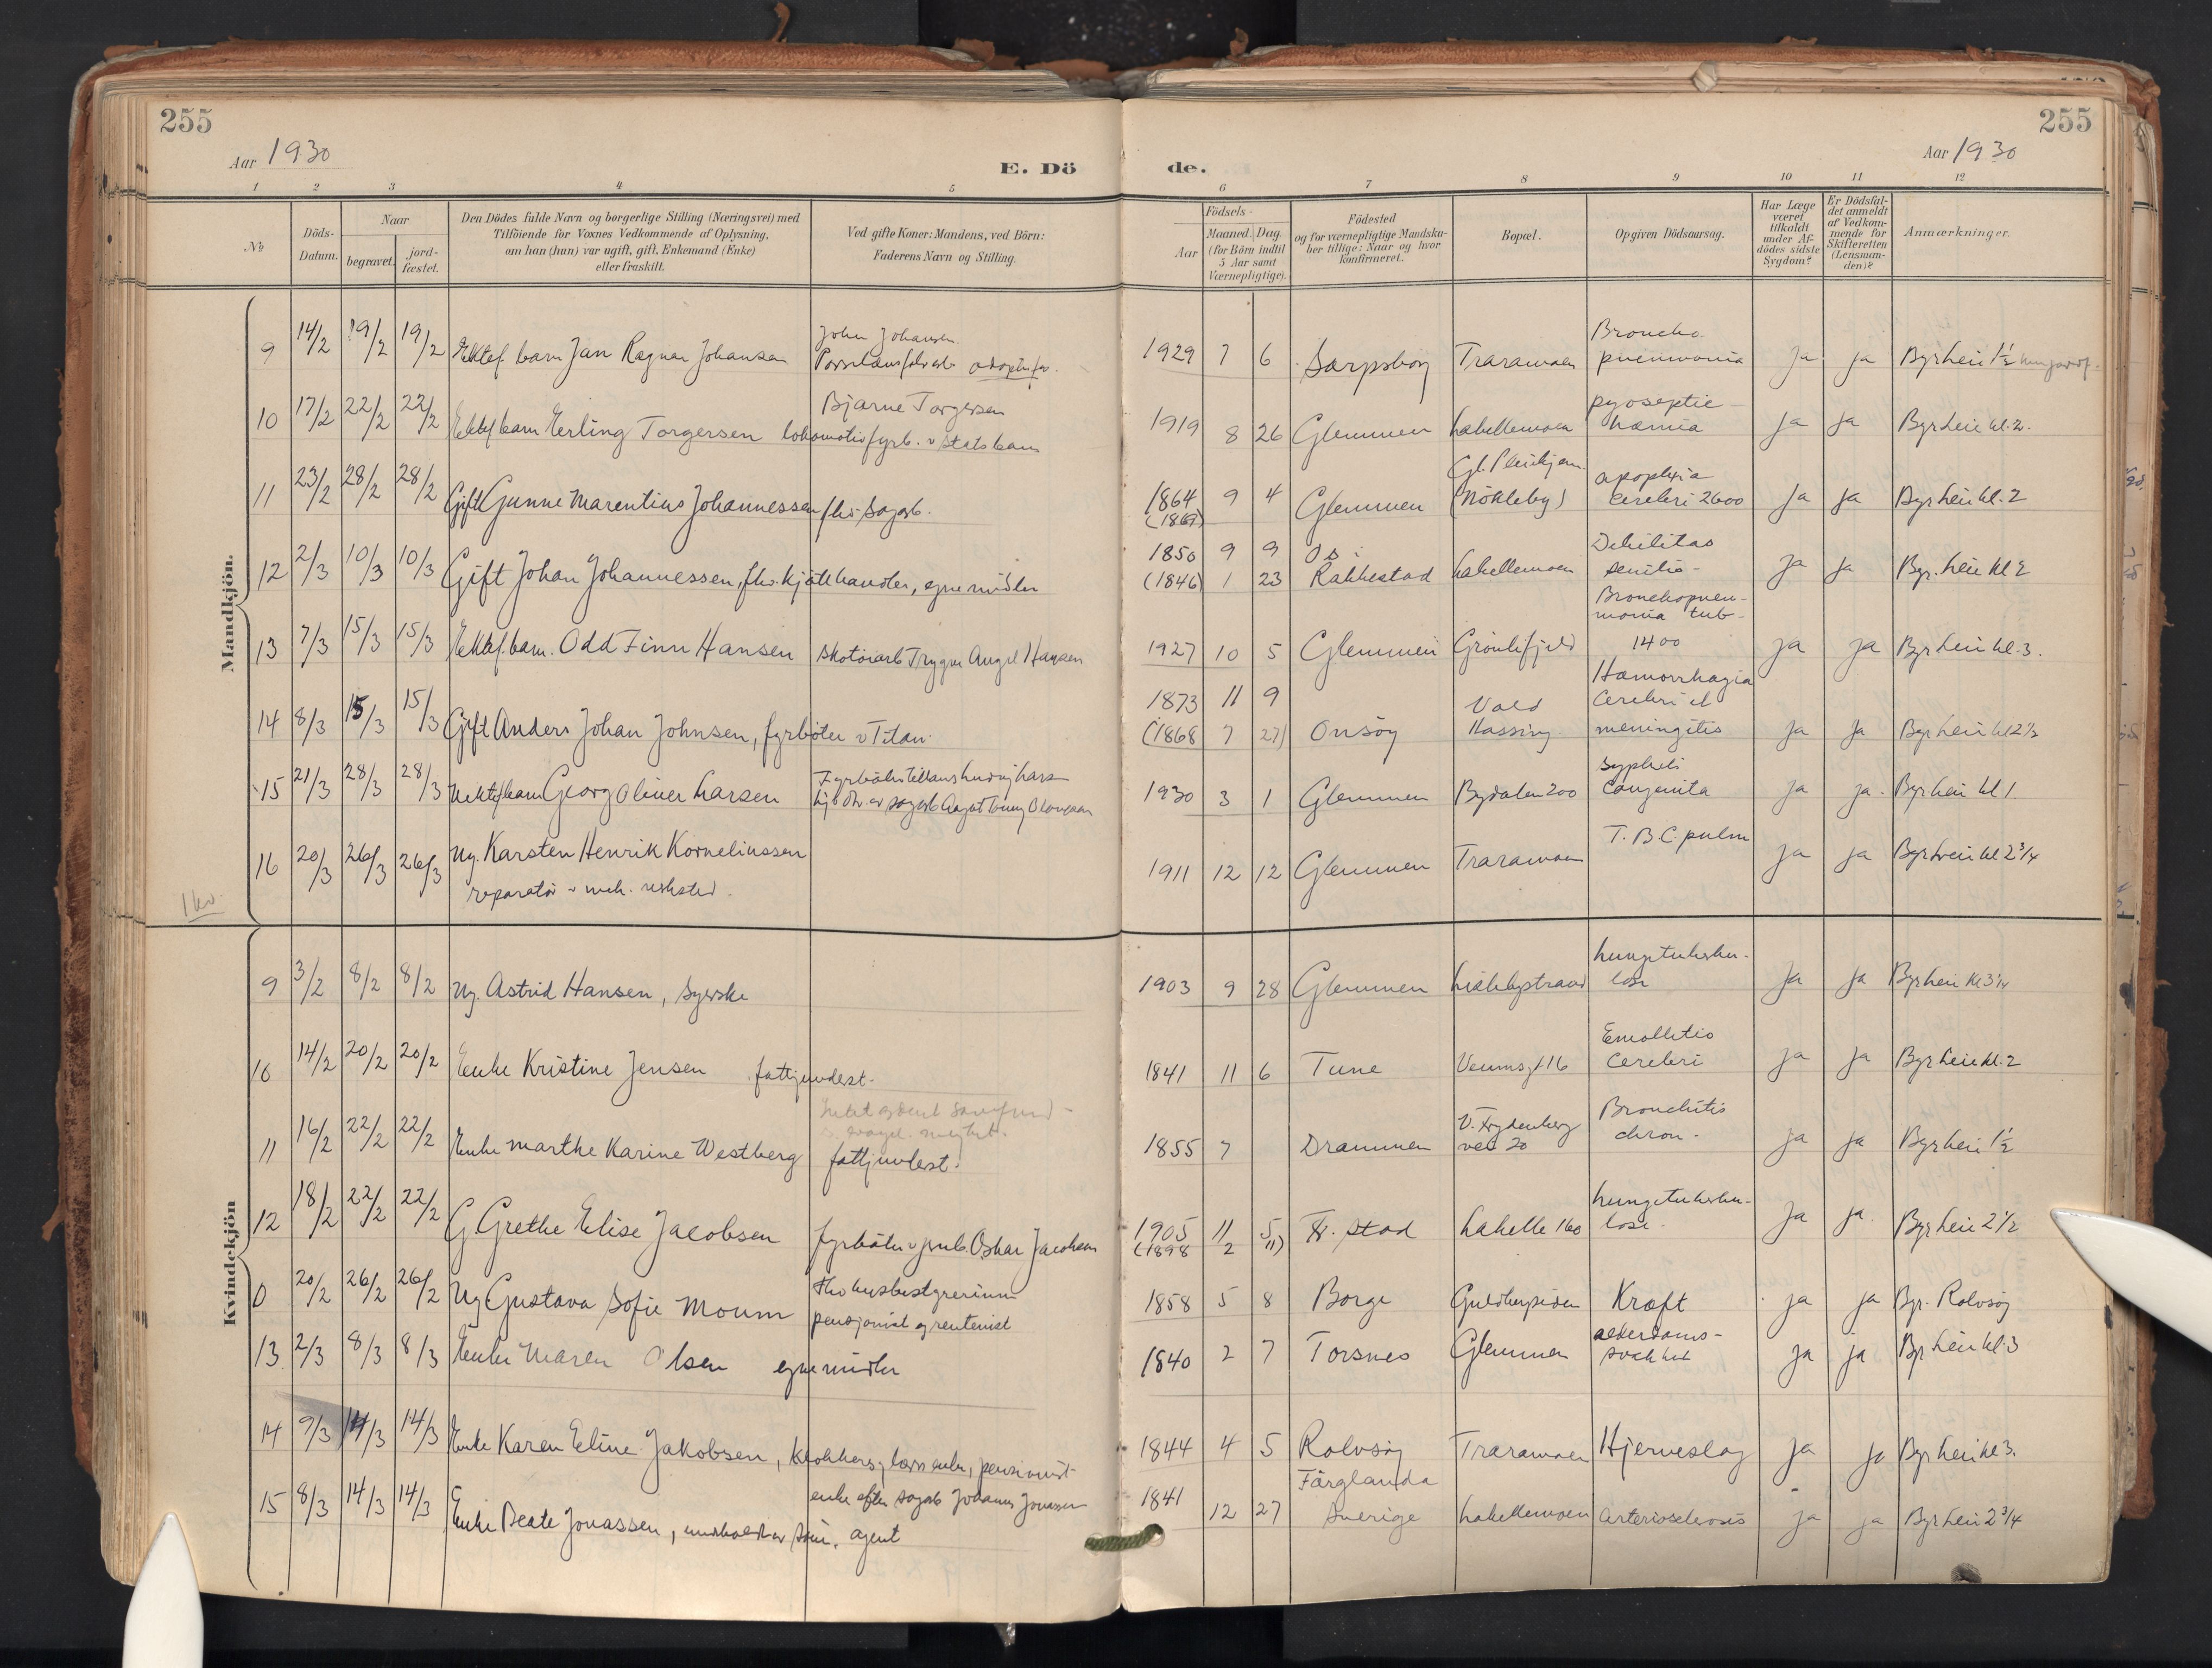 255
255
Aar 1930
E. Dö
de.
Aar 1930
1 2 3 4 5 6 7 8 9 10 11 12
No
Döds-Datum.
Naar
begravet.
jord-fæstet.
Den Dödes fulde Navn og borgerlige Stilling (Næringsvei) med
Tilföiende for Voxnes Vedkommende af Oplysning,
om han (hun) var ugift, gift, Enkemand (Enke)
eller fraskilt.
Ved gifte Koner: Mandens, ved Börn:
Faderens Navn og Stilling.
Födsels-
Aar
Maaned. Dag.
(for Börn indtil
5 Aar samt
Værnepligtige).
Födested
og for værnepligtige Mandska-
ber tillige: Naar og hvor
Konfirmeret.
Bopæl.
Opgiven Dödsaarsag.
Har Læge
været
tilkaldt
under Af-
dödes sidste
Sygdom?
Er Dödsfal-
det anmeldt
af Vedkom-
mende for
Skifteretten
(Lensman-
den)?
Anmærkninger.
Mandkjön.
9 14/2 19/2 19/2 Ektef. barn Jan Ragnar Johansen John Johansen 1929 7 6 Sarpsborg Traramoen Broncho pneumonia ja ja Bgr. Leie 1 1/2
10 17/2 22/2 22/2 Ektef. barn Erling Torgersen Bjarne Torgersen lokomotivfyrb. v Statsban 1919 8 26 Glemmen Labellemoen pyoseptic-hæmia ja ja Bgr Leie kl. 2.
11 23/2 28/2 28/2 Gift Gunne Marentius Johannessen fhv. sagarb. 1864 (1865) 9 4 Glemmen Gl. Pleiehjem (Nökleby) apoplexia cerebri 2600 ja ja Bgr Leie kl. 2
12 2/3 10/3 10/3 Gift Johan Johannessen, fhv. kjötthandler, egne midler 1850 9 9 (1846) 1 23 Os i Rakkestad Labellemoen Debilitas senilis- ja ja Bgr. Leie kl 2
13 7/3 15/3 15/3 Ektef. barn Odd Finn Hansen Skotöiarb Trygve Angel Hansen 1927 10 5 Glemmen Grönlifjeld Bronchopneu-monia tub- 1400 ja ja Bgr Leie kl. 3.
14 8/3 15/3 15/3 Gift Anders Johan Johnsen, fyrböter v Titan 1873 11 9 (1868 7 27) Onsöy Vold Hassing Hæmorrhagia Cerebri et meningitis ja ja Bgr Leie kl 2 1/2
15 21/3 28/3 28/3 Uektef barn Georg Oliver Larsen 1930 3 1 Glemmen Bydalen 200 Syphilis Congenita ja ja. Bgr Leie kl 1.
16 20/3 26/3 26/3 Ug. Karsten Henrik Korneliussen 1911 12 12 Glemmen Traramoen T. B. C. pulm ja ja Bgr Leie kl 2 3/4
reparatör v mek. verksted.
Kvindekjön
9 3/2 8/2 8/2 Ug. Astrid Hansen, Syerske 1903 9 28 Glemmen Lislebystrand Lungetuberku-lose ja ja Bgr Leie kl 3 1/4
10 14/2 20/2 20/2 Enke Kristine Jensen fattigunderst. 1841 11 6 Tune Veumsgt 16 Emollitio Cerebri ja ja Bgr Leie kl. 2
11 16/2 22/2 22/2 Enke Marthe Karine Westberg fattigunderst. 1855 7 Drammen V. Frydenberg vei 20 Bronchitis chron. ja ja Bgr Leie 1 1/2
12 18/2 22/2 22/2 G Grethe Elise Jacobsen fyrböter v jernb. Oskar Jacobsen 1905 11 5 (1898 2 11) Fr. stad Labelle 160 Lungetuberku-lose. ja ja. Bgr Leie 2 1/2
0 20/2 26/2 26/2 Ug Gustava Sofie Moum fhv husbestyrerinne pensjonist og rentenist 1858 5 8 Borge Guldbergsiden Kræft ja ja Bgr. Rolvsöy
13 2/3 8/3 8/3 Enke Maren Olsen egne midler 1840 2 7 Torsnes Glemmen alderdoms-svakhet ja ja Bgr Leie kl. 3
14 9/3 14/3 14/3 Enke Karen Eline Jakobsen, Klokker og lærer enke, pensionist 1844 4 5 Rolvsöy Traramoen Hjerneslag ja ja Bgr Leie kl 3.
15 8/3 14/3 14/3 Enke Beate Jonassen, underholdt av sön, agent enke efter sagarb Johannes Jonassen 1841 12 27 Färglanda Sverige Labellemoen Arteriosclerosis ja ja Bgr Leie 2 3/4